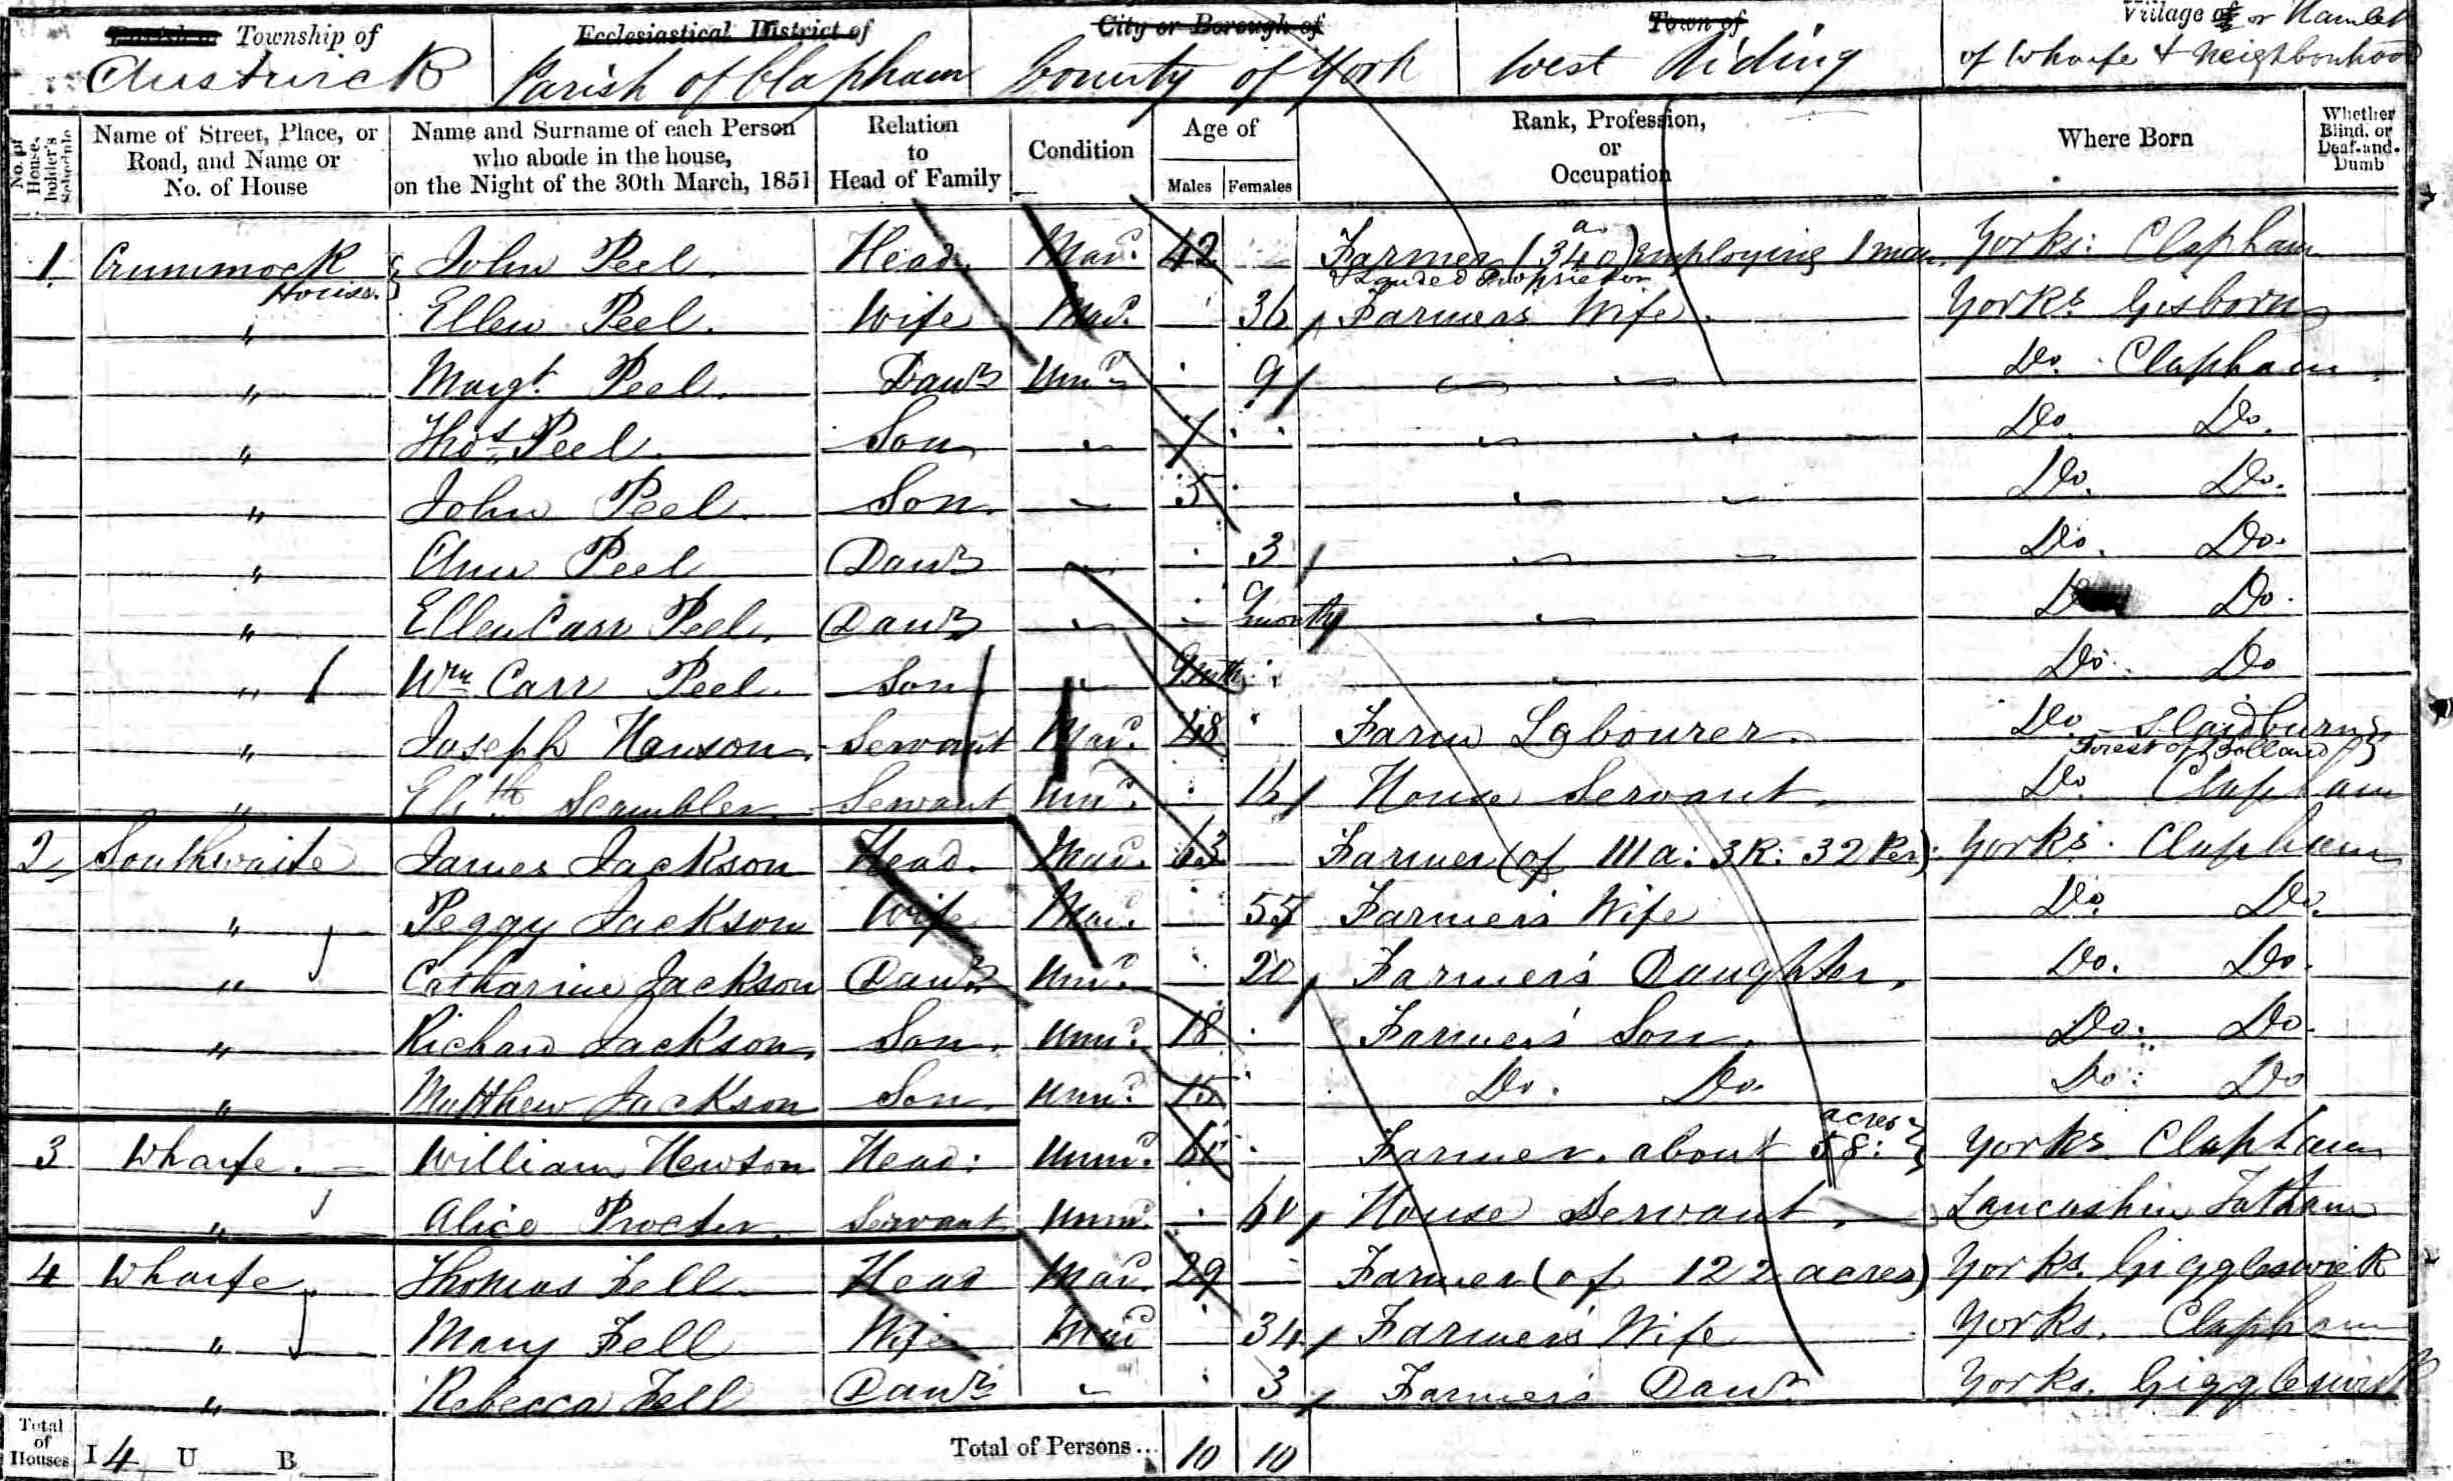 Parish or Township of Ecclesiastical District of City or Borough of Town of Village of or Hamlet
Austwick Parish of Clapham County of York West Riding of Wharfe & Neighbourhood
No. of House-holder's Schedule
Name of Street, Place, or Road, and Name or No. of House
Name and Surname of each Person who abode in the house, on the Night of the 30th March, 1851
Relation to Head of Family
Condition
Age of
Males Females
Rank, Profession, or Occupation
Where Born
Whether Blind, or Deaf-and-Dumb
1 Crummock House. John Peel. Head. Mar. 42 Farmer (340 a) employing 1 man. Yorks: Clapham
& Landed Proprietor
" Ellen Peel. Wife Mar. 36 Farmer's Wife. Yorks. Gisborn
" Margt. Peel. Daur Unm. 9 Do. Clapham
" Thos. Peel. Son 7 Do. Do.
" John Peel. Son. 5 Do. Do.
" Ann Peel Daur 3 Do. Do.
" Ellen Carr Peel. Daur 9 months Do.
" Wm Carr Peel. Son 9 mths Do. Do
" Joseph Hewson. Servant Mar. 48 Farm Labourer. Do. Slaidburn
Forest of Bolland
" Elizth Scambler Servant Unm. 16 House Servant. Do. Clapham
2 Southwaite James Jackson Head. Mar. 63 Farmer (of 111 a: 3 R: 32 Per): Yorks. Clapham
" Peggy Jackson Wife Mar. 55 Farmer's Wife Do. Do.
" Catharine Jackson Daur Unm. 20 Farmer's Daughter. Do. Do.
" Richard Jackson. Son. Unm. 18 Farmer's Son. Do. Do.
" Matthew Jackson Son. Unm. 15 Do. Do. Do. Do
3 Wharfe. William Hewson Head. Unm. Farmer. about 58 acres Yorks Clapham
" Alice Procter. Servant Unm. House Servant. Lancashire Tatham
4 Wharfe. Thomas Fell. Head Mar. 29 Farmer (of 122 acres) Yorks. Giggleswick
" Mary Fell Wife Mar 34 Farmer's Wife Yorks. Clapham
" Rebecca Fell Daur 3 Farmer's Daur Yorks. Giggleswick
Total of Houses I 4 U B Total of Persons... 10 10